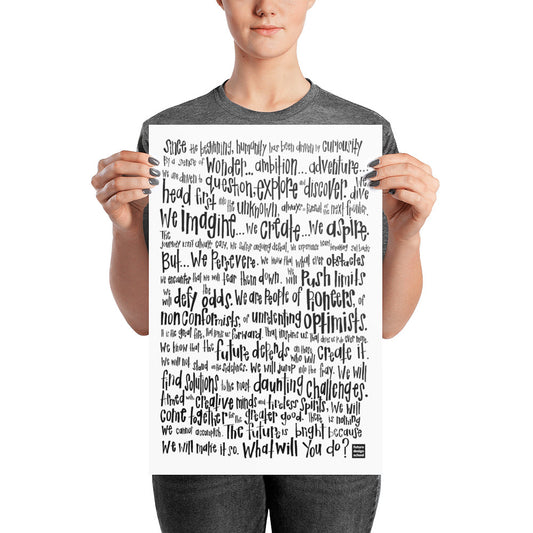 Since the beginning, humanity has been driven by curiosity
By a sense of wonder... ambition... adventure...
We are driven to question, explore and discover. We dive
head first into the unknown, always in pursuit of the next frontier.
We imagine... we create... we aspire.
The journey isn't always easy, we suffer ongoing defeat, we experience heart breaking set backs
But... we persevere. We know that what ever obstacles
we encounter that we will tear them down. We will push limits
We will defy the odds. We are people of pioneers, of
nonconformists, of unrelenting optimists.
It is the great fire, that drives us forward. That inspires us that
We know that the future depends on those who will create it.
We will not stand on the sidelines. We will jump into the fray. We will
find solutions to the most daunting challenges.
Armed with creative minds and tireless spirits, we will
come together for the greater good. There is nothing
we cannot accomplish. The future is bright because
We will make it so. What will you do?